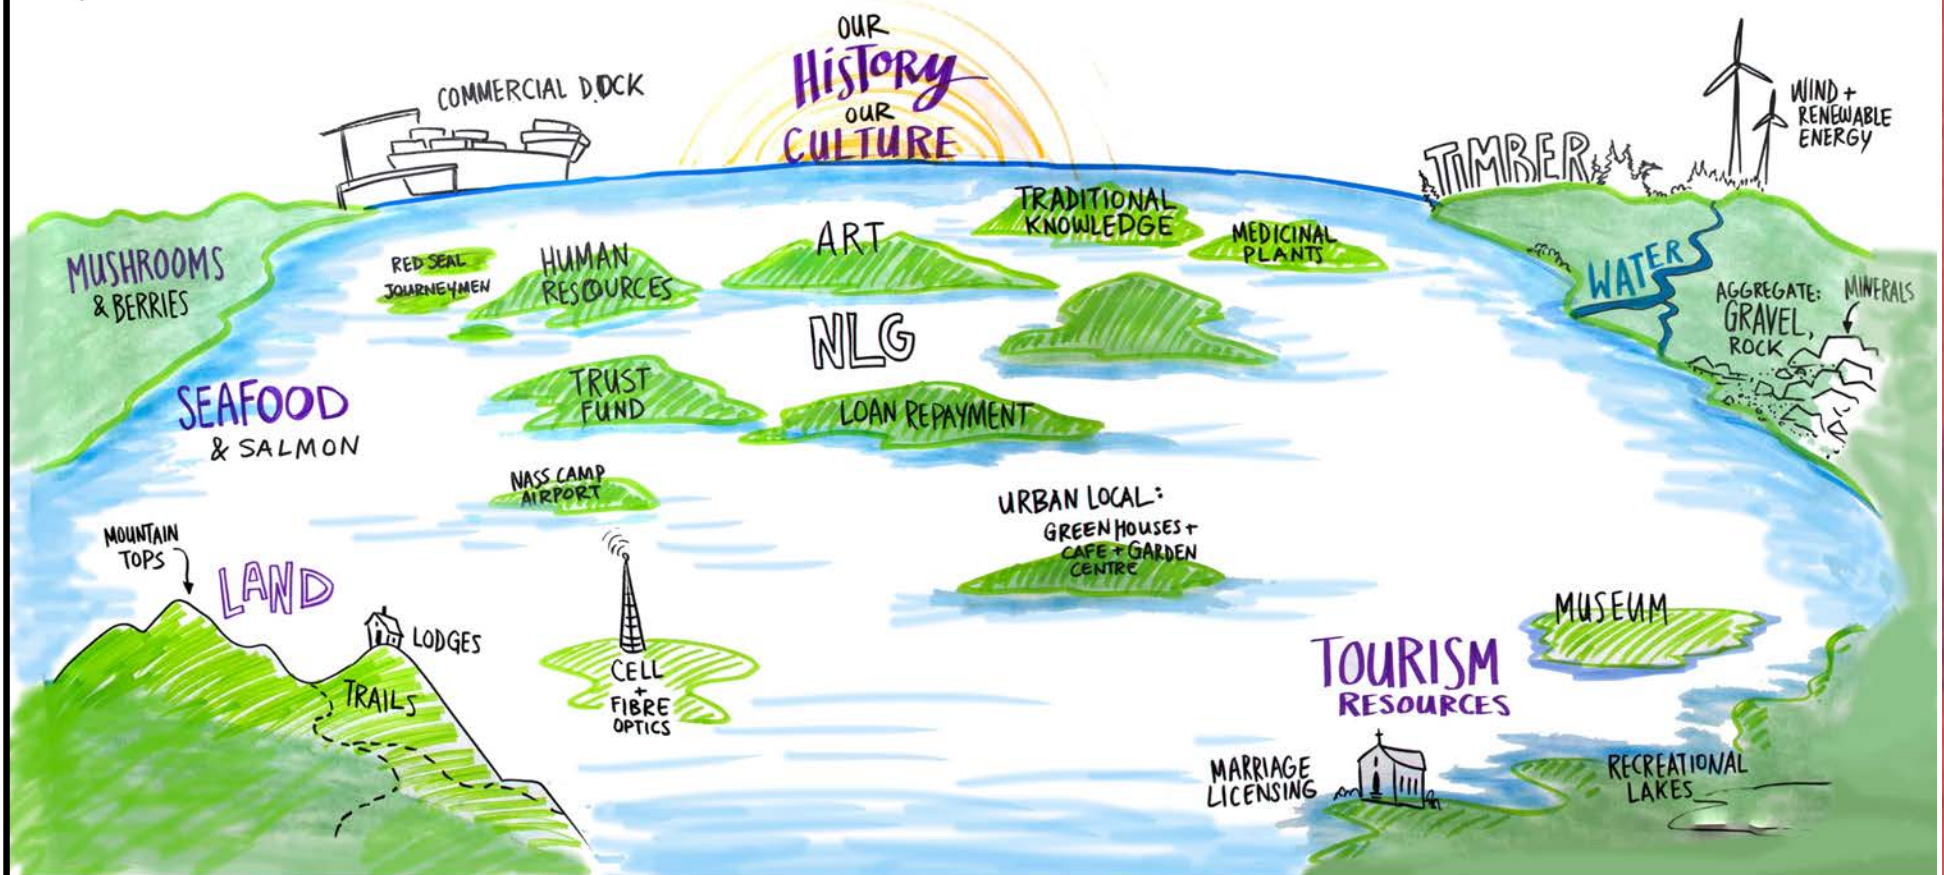 OUR
HISTORY
OUR
CULTURE
COMMERCIAL DOCK
TIMBER
WIND +
RENEWABLE
ENERGY
MUSHROOMS
& BERRIES
RED SEAL
JOURNEYMEN
HUMAN
RESOURCES
ART
TRADITIONAL
KNOWLEDGE
MEDICINAL
PLANTS
WATER
AGGREGATE:
GRAVEL,
ROCK
MINERALS
NLG
SEAFOOD
& SALMON
TRUST
FUND
LOAN REPAYMENT
NASS CAMP
AIRPORT
URBAN LOCAL:
GREENHOUSES +
CAFE + GARDEN
CENTRE
MOUNTAIN
TOPS
LAND
LODGES
TRAILS
CELL
+
FIBRE
OPTICS
MUSEUM
TOURISM
RESOURCES
MARRIAGE
LICENSING
RECREATIONAL
LAKES